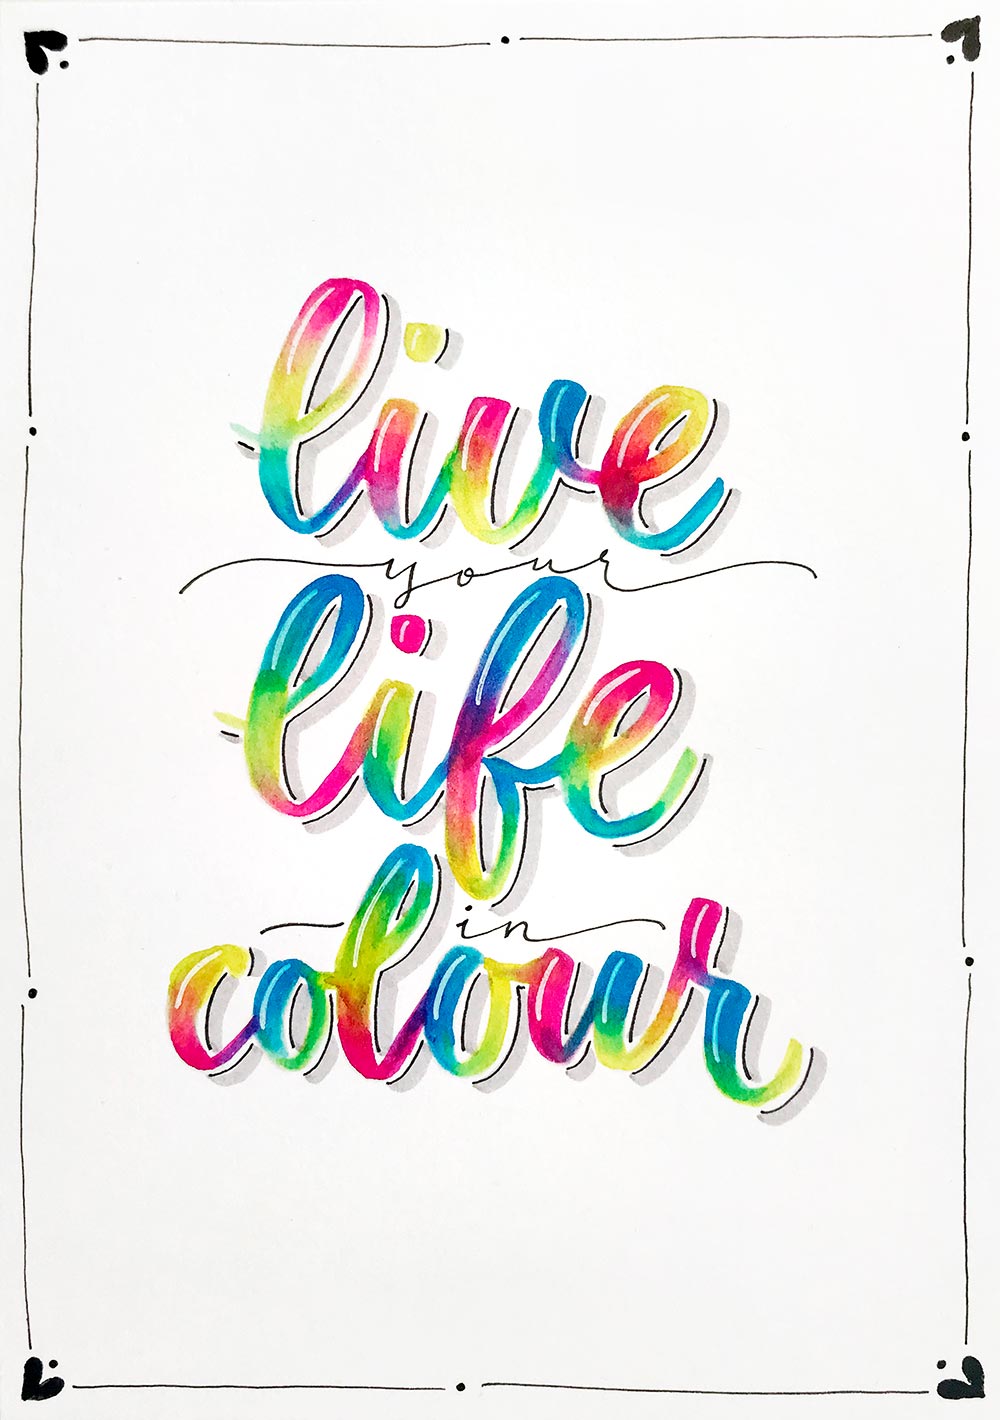 live
your
life
in
colour